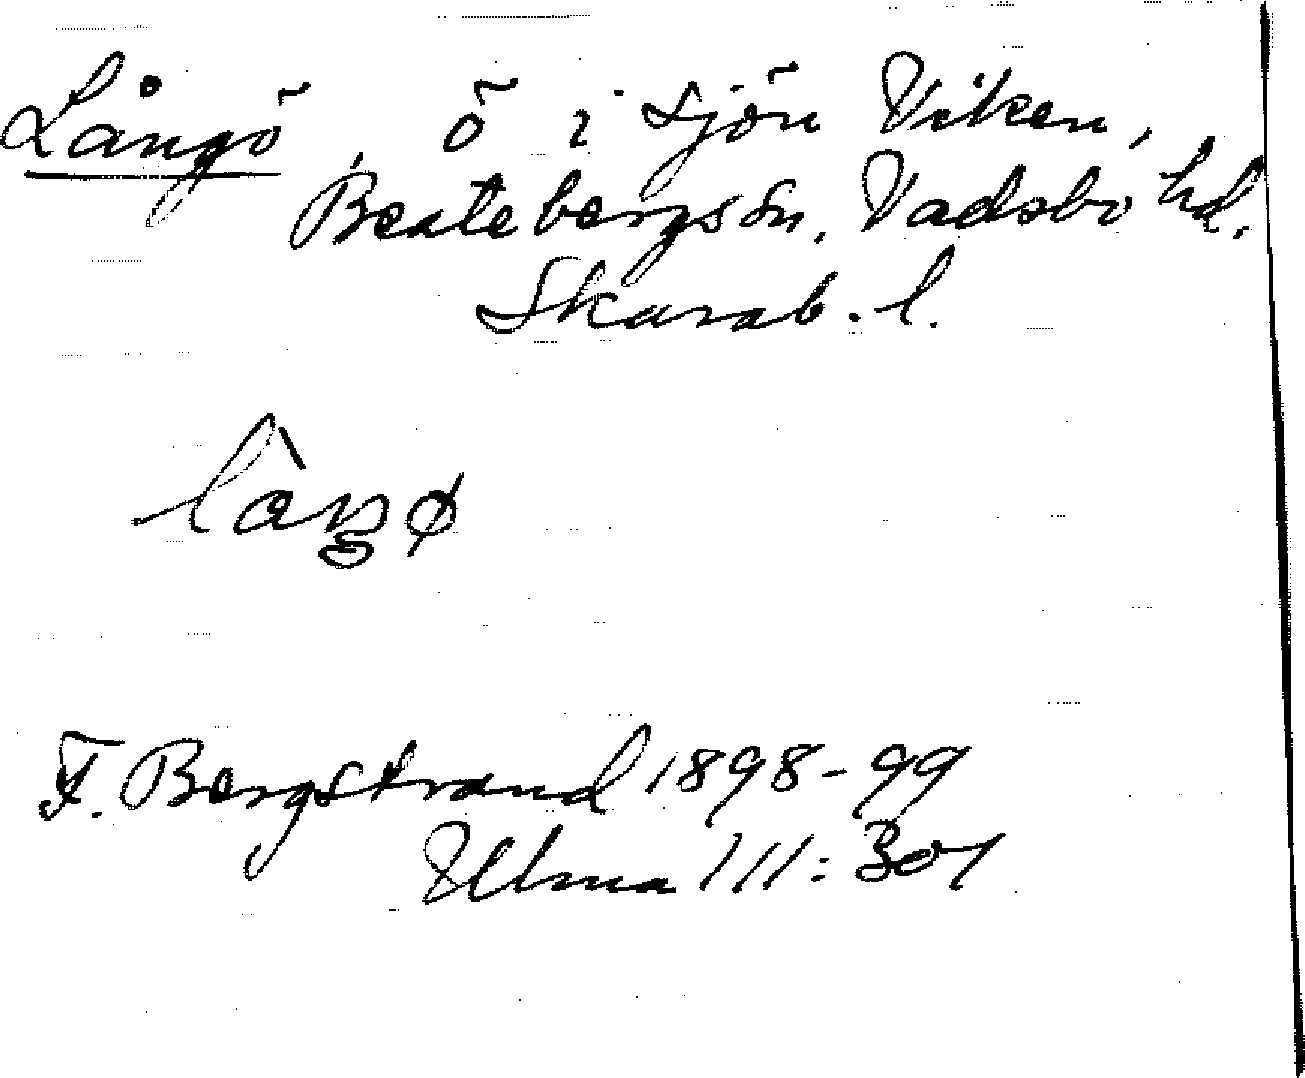 Långö, ö i sjön Viken,
Beatebergs sn, Vadsbo hd.
Skarab. l.
làŋø
F. Bergstrand 1898-99
Ulma 111:301